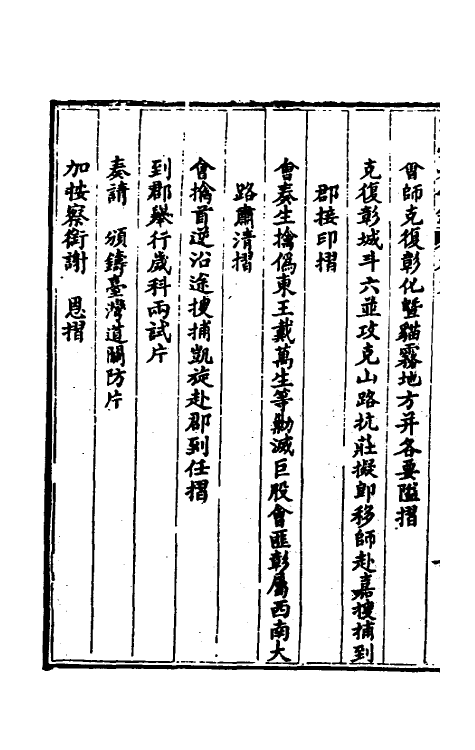 會師克復彰化曁貓霧地方并各要隘摺
克復彰城斗六並攻克山路抗莊擬卽移師赴嘉搜捕到
郡接印摺
會奏生擒僞東王戴萬生等勦滅巨股會匪彰屬西南大
路肅清摺
會擒首逆沿途搜捕凱旋赴郡到任摺
到郡舉行歲科兩試片
奏請　頒鑄臺灣道關防片
加按察銜謝　恩摺